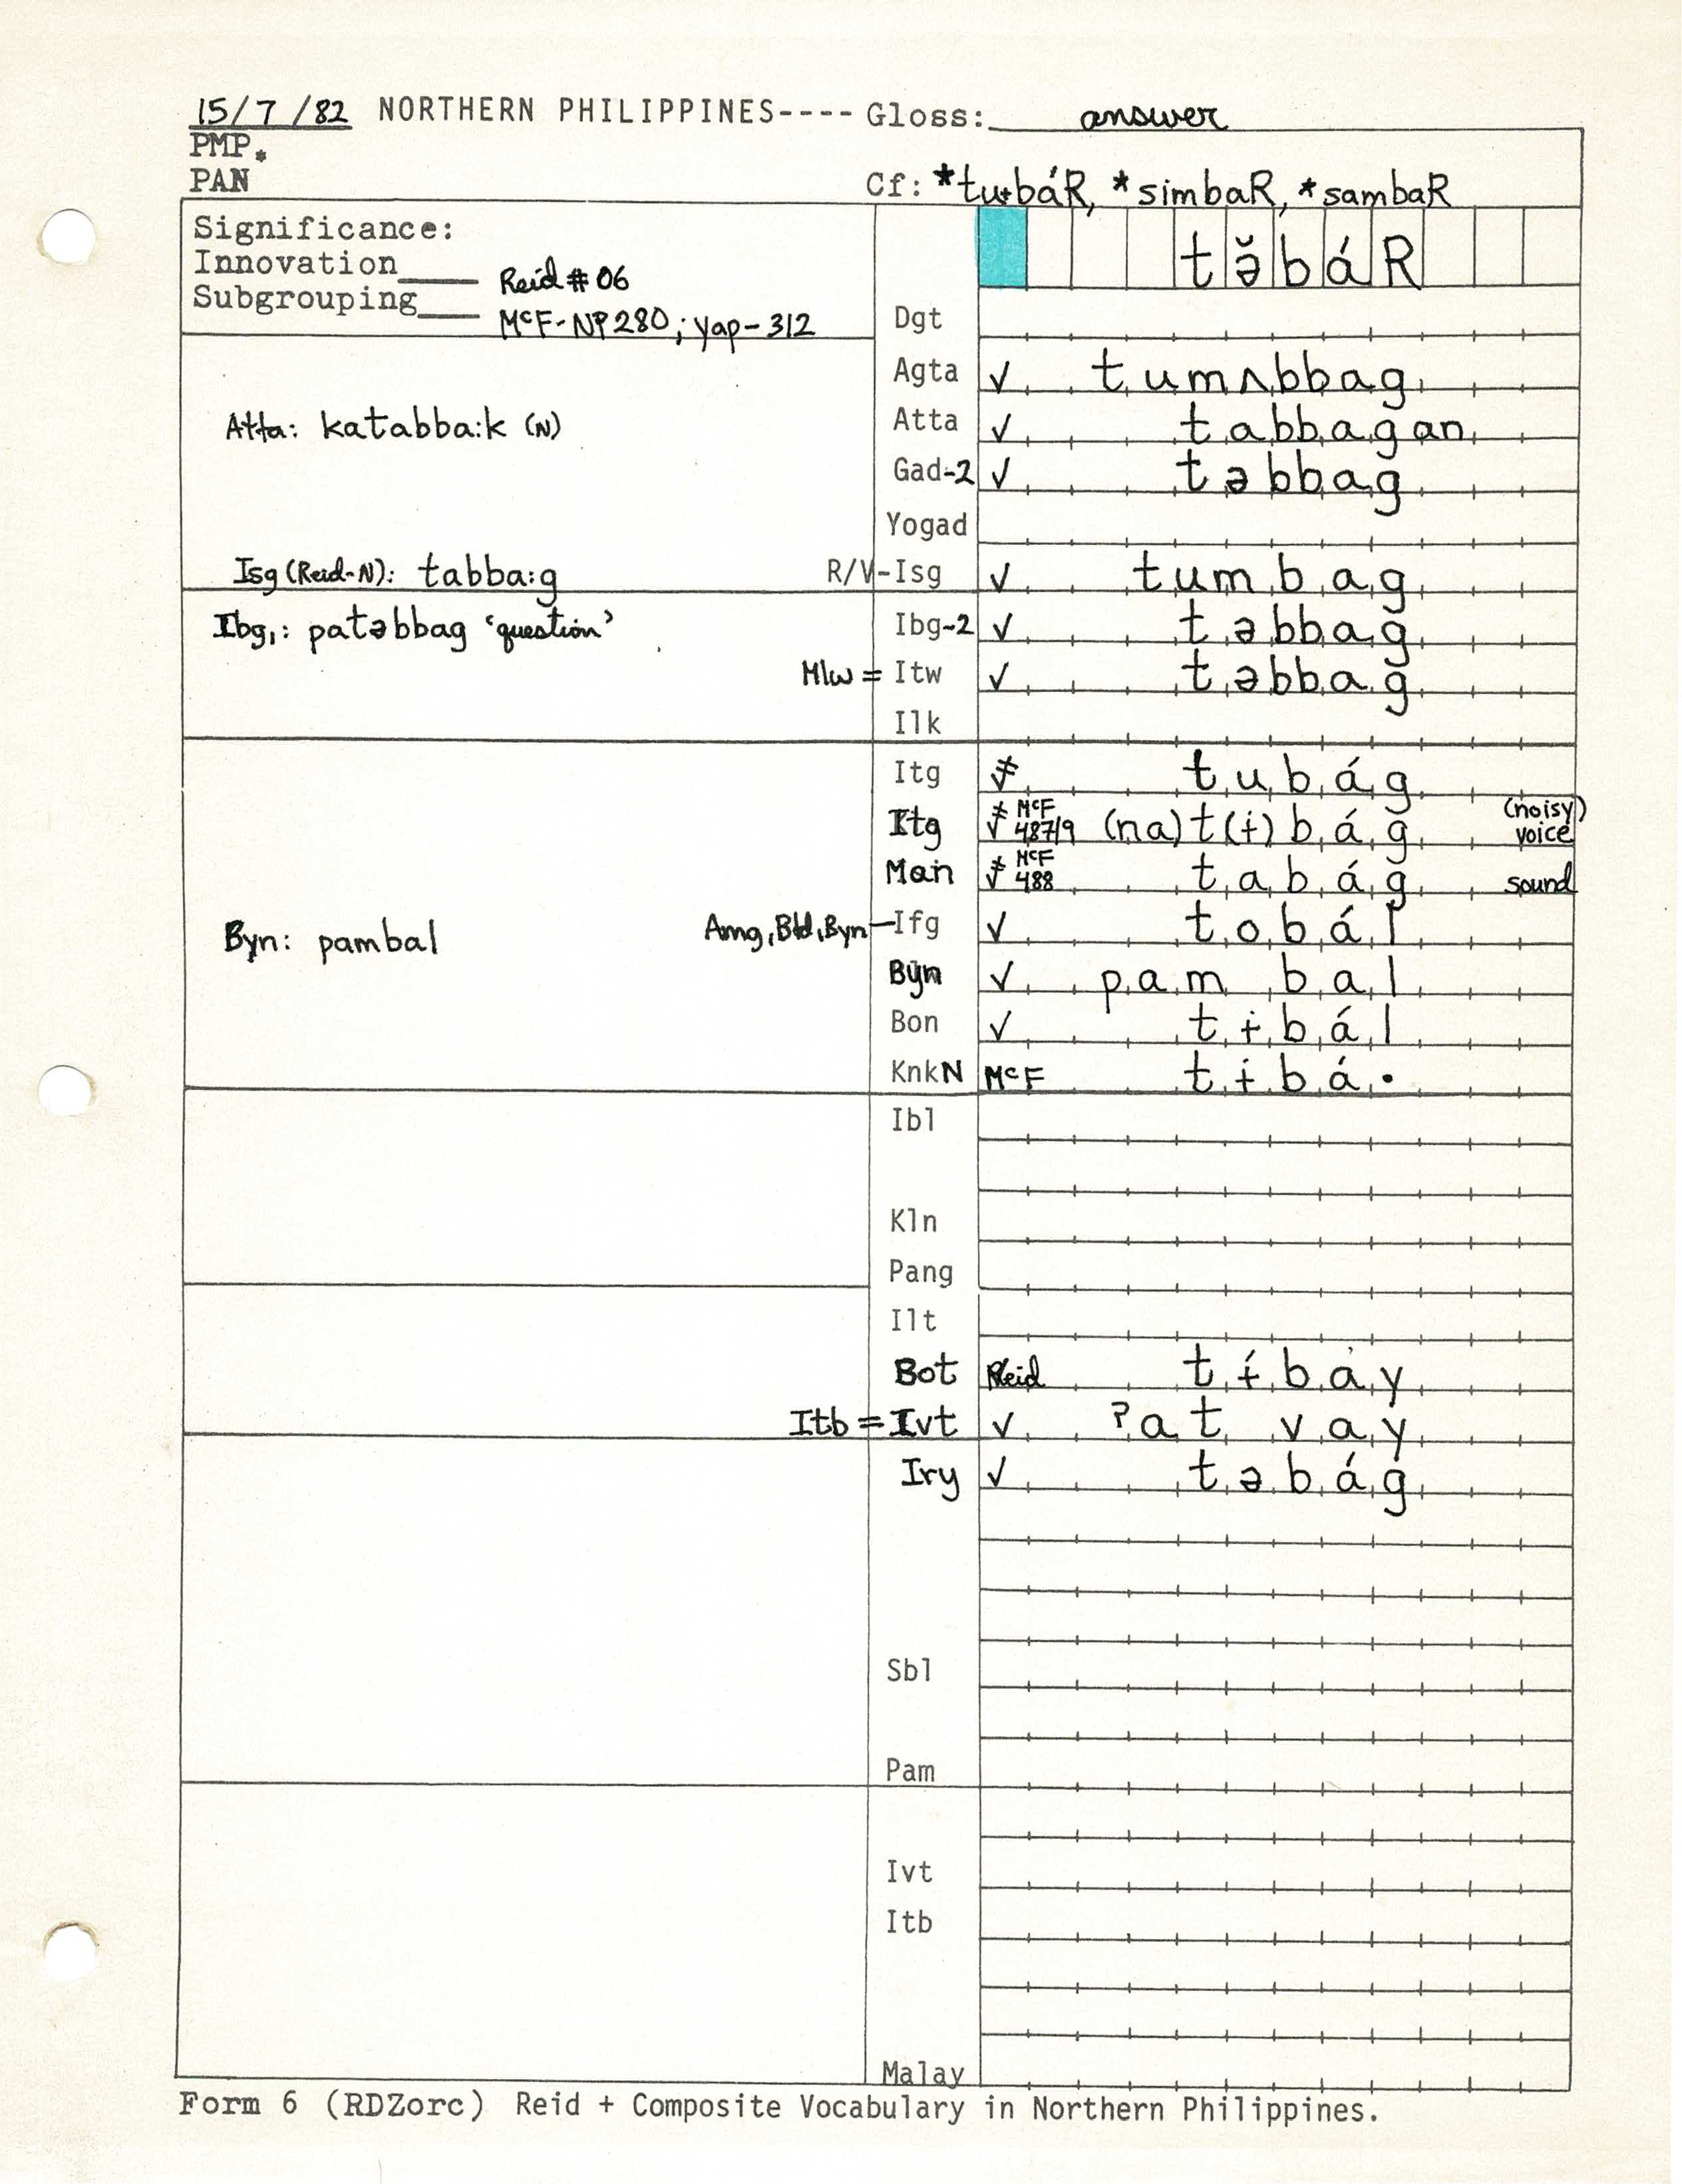 15/7/82 NORTHERN PHILIPPINES---- Gloss: answer
PMP*
PAN Cf: *tu+báR, *simbaR, *sambaR
Significance:
Innovation____ Reid # 06
Subgrouping____ McF-NP 280; yap-312
tə̆báR
Dgt
Agta ✓ tumʌbbag
Atta: katabba:k (N) Atta ✓ tabbagan
Gad-2 ✓ təbbag
Yogad
Isg (Reid-N): tabba:g R/V-Isg ✓ tumbag
Ibg1: patəbbag 'question' Ibg-2 ✓ təbbag
Mlw = Itw ✓ təbbag
Ilk
Itg ≠ tubág
Itg ≠ ✓ McF 487/9 (na)t(ɨ)bág (noisy) voice
Man ≠ ✓ McF 488 tabág sound
Byn: pambal Amg, Btd, Byn-Ifg ✓ tobál
Byn ✓ pambal
Bon ✓ tɨbál
KnkN McF tɨbá·
Ibl
Kln
Pang
Ilt
Bot Reid tɨ́bay
Itb = Ivt ✓ ʔatvay
Iry ✓ təbág
Sbl
Pam
Ivt
Itb
Malay
Form 6 (RDZorc) Reid + Composite Vocabulary in Northern Philippines.